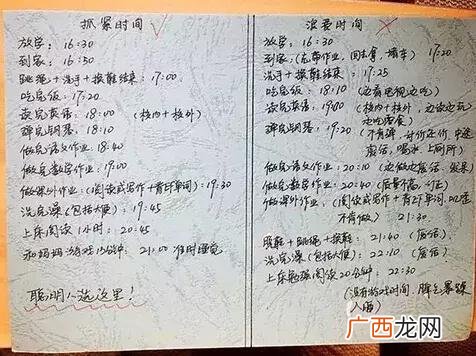 抓紧时间
放学：16:30
到家：16:50
跳绳+洗手+换鞋结束：17:00
吃完饭：17:20
读完英语：18:00（校内+校外）
弹完钢琴：18:10
做完语文作业：18:40
做完数学作业：19:00
做课外作业：（阅读或写作+背5个单词）19:30
洗完澡（包括大便）：19:45
上床阅读1小时：20:45
和妈妈游戏15分钟：21:00 准时睡觉
聪明人选这里！
浪费时间
放学：16:30
到家：（忘带作业，回去拿，堵车）17:20
洗手+换鞋结束：17:25
吃完饭：18:10（边看电视边吃）
读完英语：19:00（校内+校外，边读边玩
边吃零食）
弹完钢琴：19:20（不肯弹，讨价还价，中途
废话，喝水，上厕所）
做完语文作业：20:10（边做边废话，发呆）
做完数学作业：20:40（质量不高，订正）
做课外作业：（阅读或写作+背5个单词，以各种
不肯做）21:30
跳绳+换鞋：21:40（废话）
洗完澡（包括大便）：22:10（废话）
上床勉强阅读20分钟：22:30
（没有游戏时间，脾气暴躁
入睡）
广西龙网